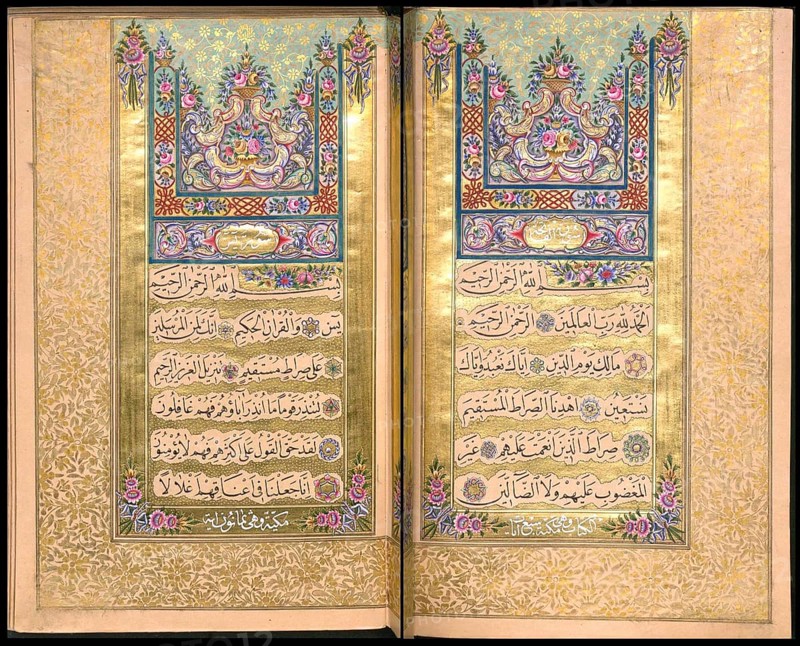 بِسْمِ اللهِ الرَّحْمٰنِ الرَّحِيمِ
الْحَمْدُ لِلهِ رَبِّ الْعَالَمِينَ الرَّحْمٰنِ الرَّحِيمِ
مَالِكِ يَوْمِ الدِّينِ اِيَّاكَ نَعْبُدُ وَاِيَّاكَ
نَسْتَعِينُ اِهْدِنَا الصِّرَاطَ الْمُسْتَقِيمَ
صِرَاطَ الَّذِينَ اَنْعَمْتَ عَلَيْهِمْ غَيْرِ
الْمَغْضُوبِ عَلَيْهِمْ وَلَا الضَّالِّينَ
الكتاب وهي مكية سبع آيات
بِسْمِ اللهِ الرَّحْمٰنِ الرَّحِيمِ
يٰسٓ وَالْقُرْاٰنِ الْحَكِيمِ اِنَّكَ لَمِنَ الْمُرْسَلِينَ
عَلٰى صِرَاطٍ مُسْتَقِيمٍ تَنْزِيلَ الْعَزِيزِ الرَّحِيمِ
لِتُنْذِرَ قَوْمًا مَا اُنْذِرَ اٰبَاؤُهُمْ فَهُمْ غَافِلُونَ
لَقَدْ حَقَّ الْقَوْلُ عَلٰى اَكْثَرِهِمْ فَهُمْ لَا يُؤْمِنُونَ
اِنَّا جَعَلْنَا فِى اَعْنَاقِهِمْ اَغْلَالًا
مكية وهي ثمانون اية